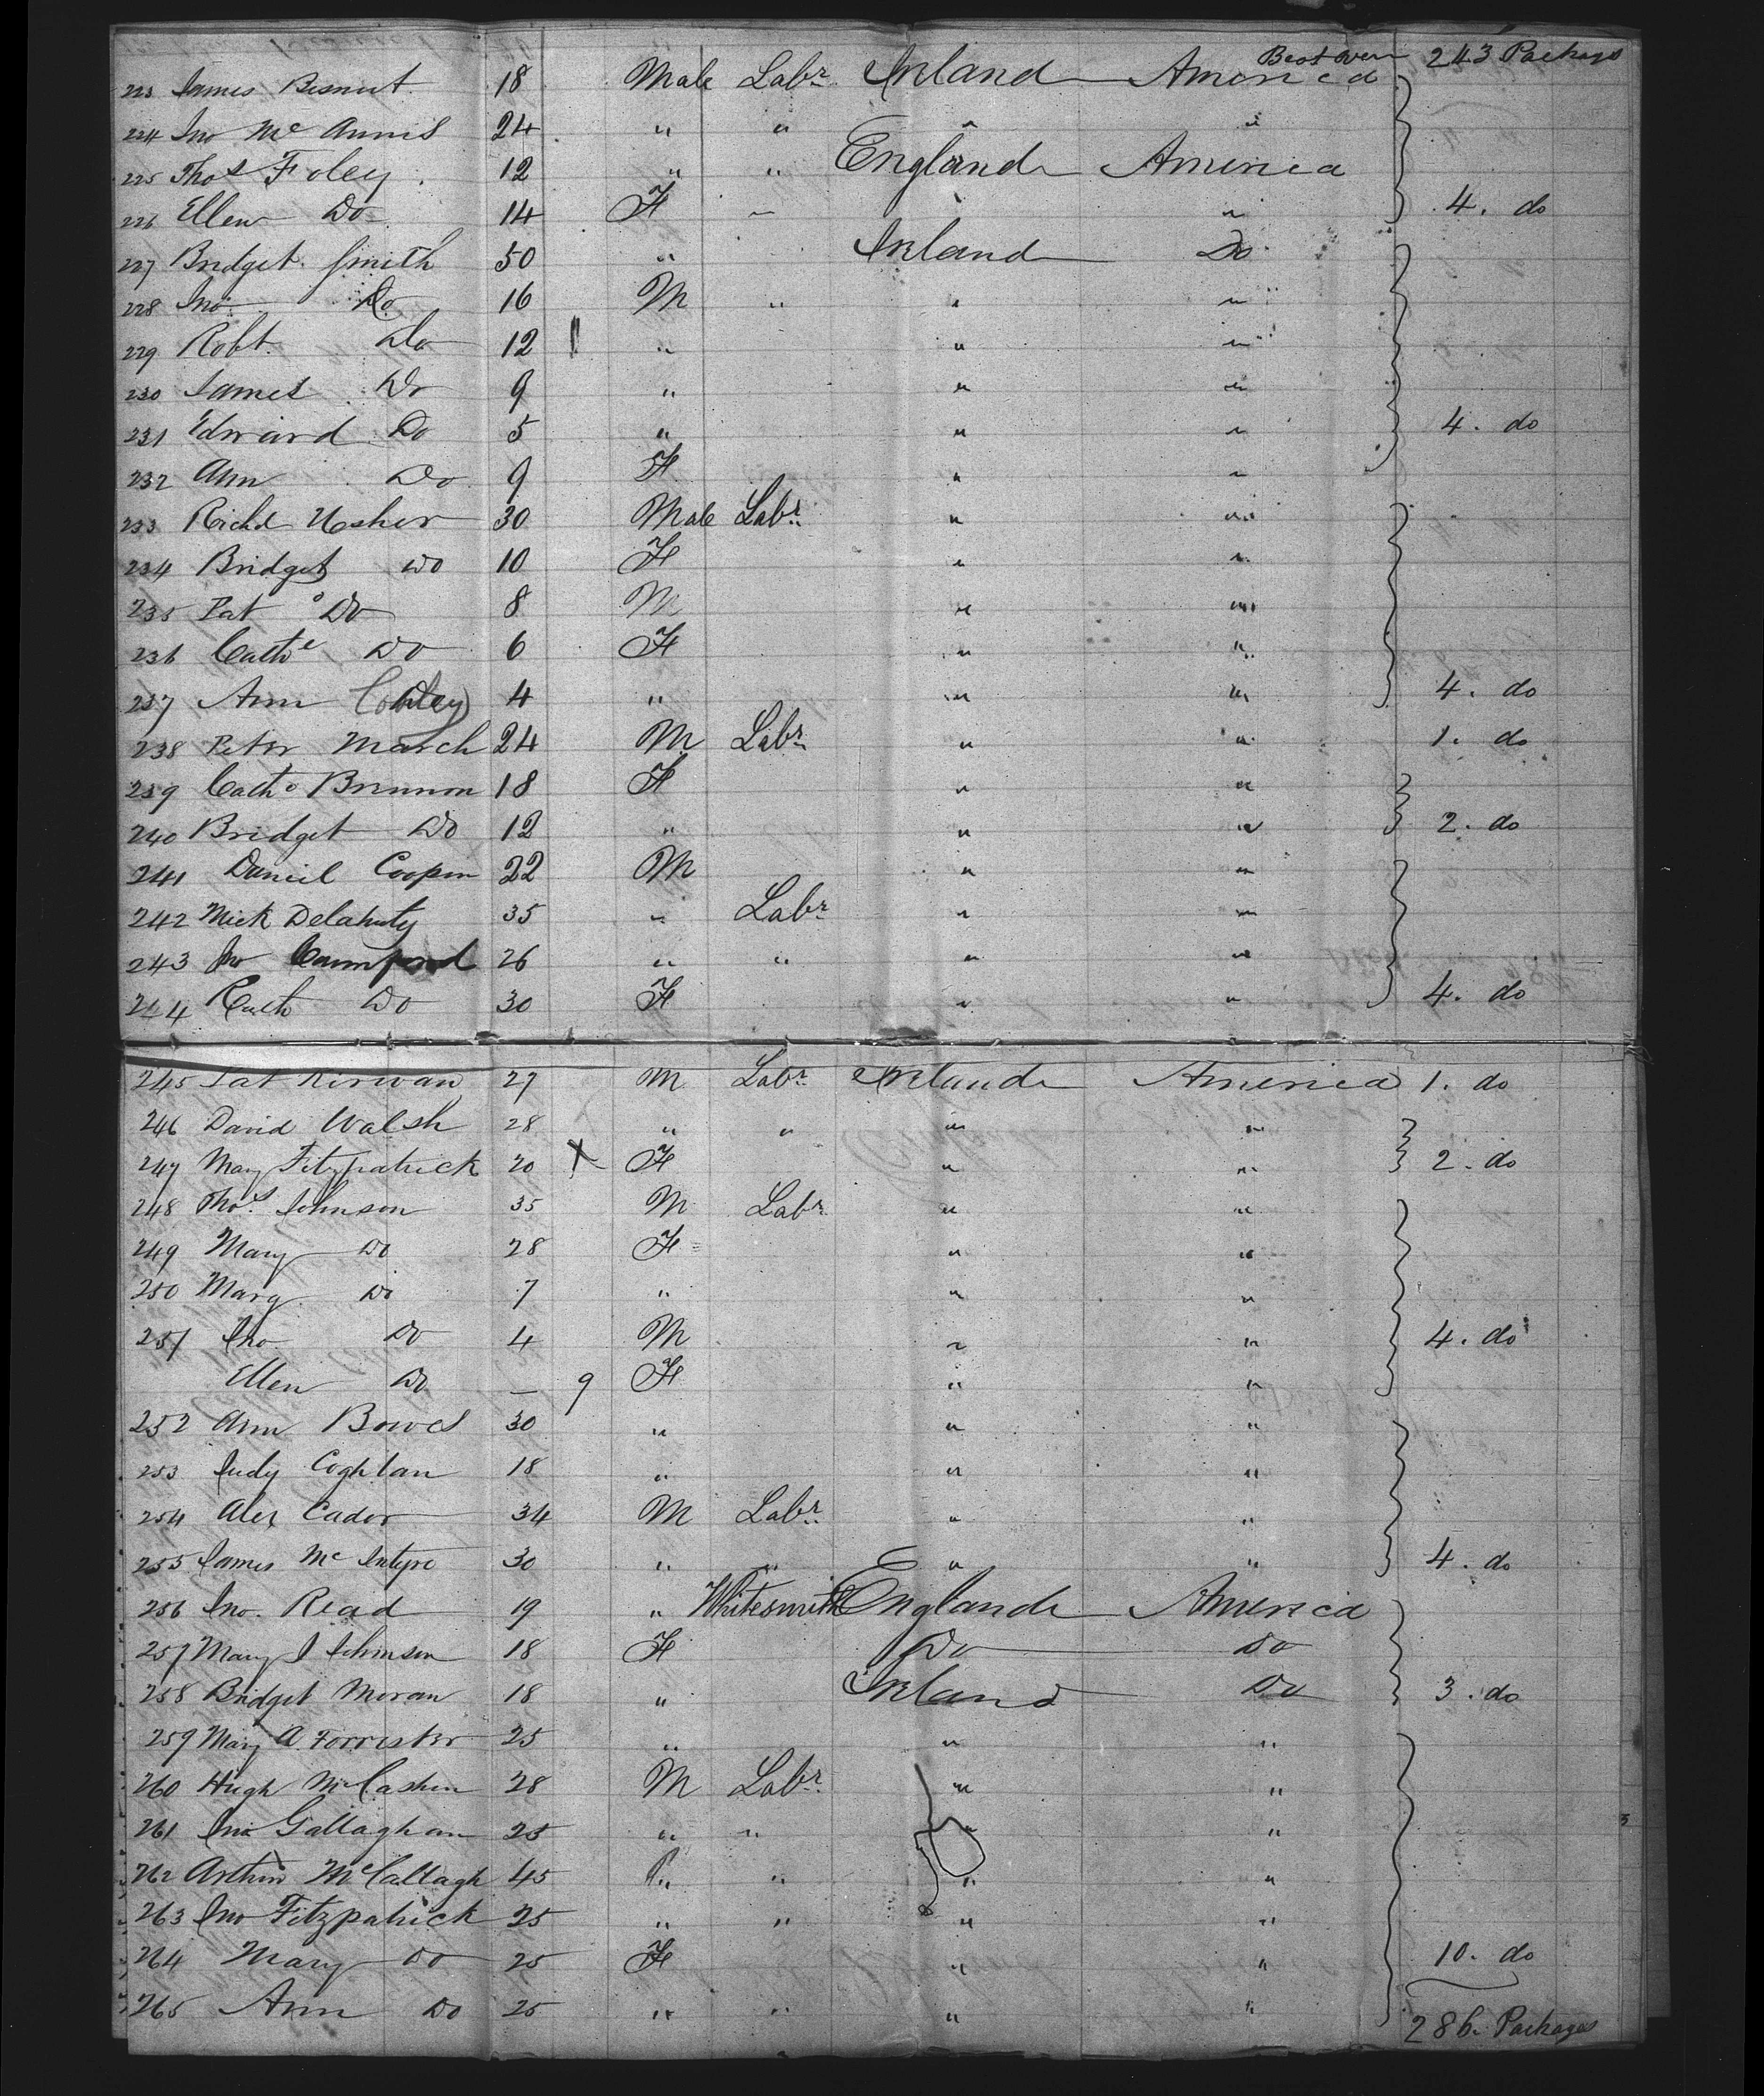 Brot over 243 Packags
223 James Besnut 18 Male Labr Ireland America
224 Jno Mc Annis 24 " " " "
225 Thos Foley 12 " " England America
226 Ellen Do 14 F " " " 4. do
227 Bridget Smith 50 " Ireland Do
228 Jno Do 16 M " " "
229 Robt. Do 12 " " "
230 James Do 9 " " "
231 Edward Do 5 " " " 4. do
232 Ann Do 9 F " "
233 Richd Usher 30 Male Labr " "
234 Bridget Do 10 F " "
235 Pat Do 8 M " "
236 Cathe Do 6 F " "
237 Ann 4 " " " 4. do
238 Peter March 24 M Labr " " 1. do
239 Cathe Brennon 18 F " "
240 Bridget Do 12 " " " 2. do
241 Daniel Cooper 22 M " "
242 Mick Delahuty 35 " Labr " "
243 Jno 26 " " " "
244 Cath Do 30 F " " 4. do
245 Pat Kirwan 27 M Labr Ireland America 1. do
246 David Walsh 28 " " " "
247 Mary Fitzpatrick 20 X F " " 2. do
248 Thos. Johnson 35 M Labr " "
249 Mary Do 28 F " "
250 Mary Do 7 " " "
251 Jno Do 4 M " " 4. do
Ellen Do — 9 F " "
252 Ann Bowes 30 " " "
253 Judy Coghlan 18 " " "
254 Alex Cador 34 M Labr " "
255 James Mc Intyre 30 " " " " 4. do
256 Jno. Read 19 " Whitesmith England America
257 Mary J Johnson 18 F Do Do
258 Bridget Moran 18 " Ireland Do 3. do
259 Mary A Forrister 25 " " "
260 Hugh McCashen 28 M Labr " "
261 Jno Gallaghan 25 " " " "
262 Arthur McCallagh 45 " " " "
263 Jno Fitzpatrick 25 " " " "
264 Mary Do 25 F " " 10. do
265 Ann Do 25 " " " "
286 Packages